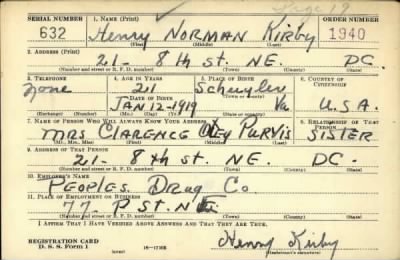 Page 19
SERIAL NUMBER 1. NAME (Print) ORDER NUMBER
632 Henry NORMAN KIRBY 1940
(First) (Middle) (Last)
2. ADDRESS (Print)
21- 8th ST. NE. DC.
(Number and street or R. F. D. number) (Town) (County) (State)
3. TELEPHONE 4. AGE IN YEARS 5. PLACE OF BIRTH 6. COUNTRY OF CITIZENSHIP
None 21 Schuyler
DATE OF BIRTH (Town or county)
JAN 12-1919 Va. U.S.A.
(Exchange) (Number) (Mo.) (Day) (Yr.) (State or country)
7. NAME OF PERSON WHO WILL ALWAYS KNOW YOUR ADDRESS 8. RELATIONSHIP OF THAT PERSON
MRS CLARENCE PURVIS SISTER
(Mr., Mrs., Miss) (First) (Middle) (Last)
9. ADDRESS OF THAT PERSON
21- 8th ST. NE. DC.
(Number and street or R. F. D. number) (Town) (County) (State)
10. EMPLOYER'S NAME
PEOPLES DRUG Co.
11. PLACE OF EMPLOYMENT OR BUSINESS
77- P ST. NE
(Number and street or R. F. D. number) (Town) (County) (State)
I AFFIRM THAT I HAVE VERIFIED ABOVE ANSWERS AND THAT THEY ARE TRUE.
REGISTRATION CARD
D. S. S. Form 1 (over) 16-17105 Henry Kirby
(Registrant's signature)